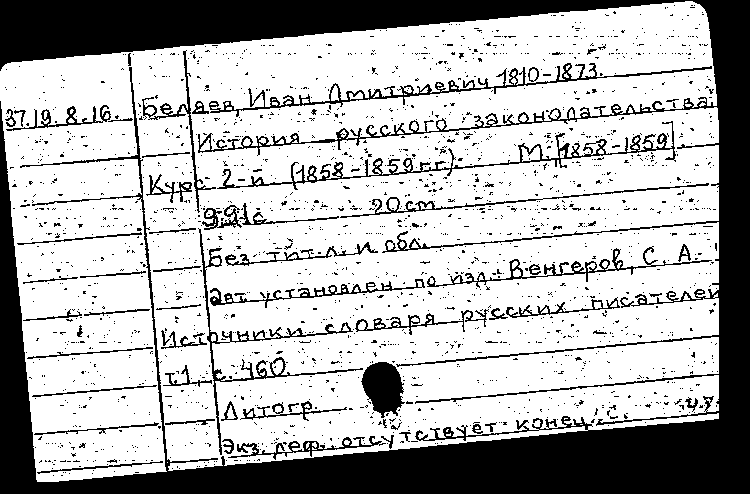 37.19.8.16. Беляев, Иван Дмитриевич, 1810-1873.
История русского законодательства.
Курс 2-й (1858-1859 г.г.). М., [1858-1859].
991с. 20cm
Без тит. л. и обл.
Авт. установлен по изд.: Венгеров, С. А.
Источники словаря русских писателей
т.1, с. 460.
Литогр.
Экз. деф.: отсутствует конец с.